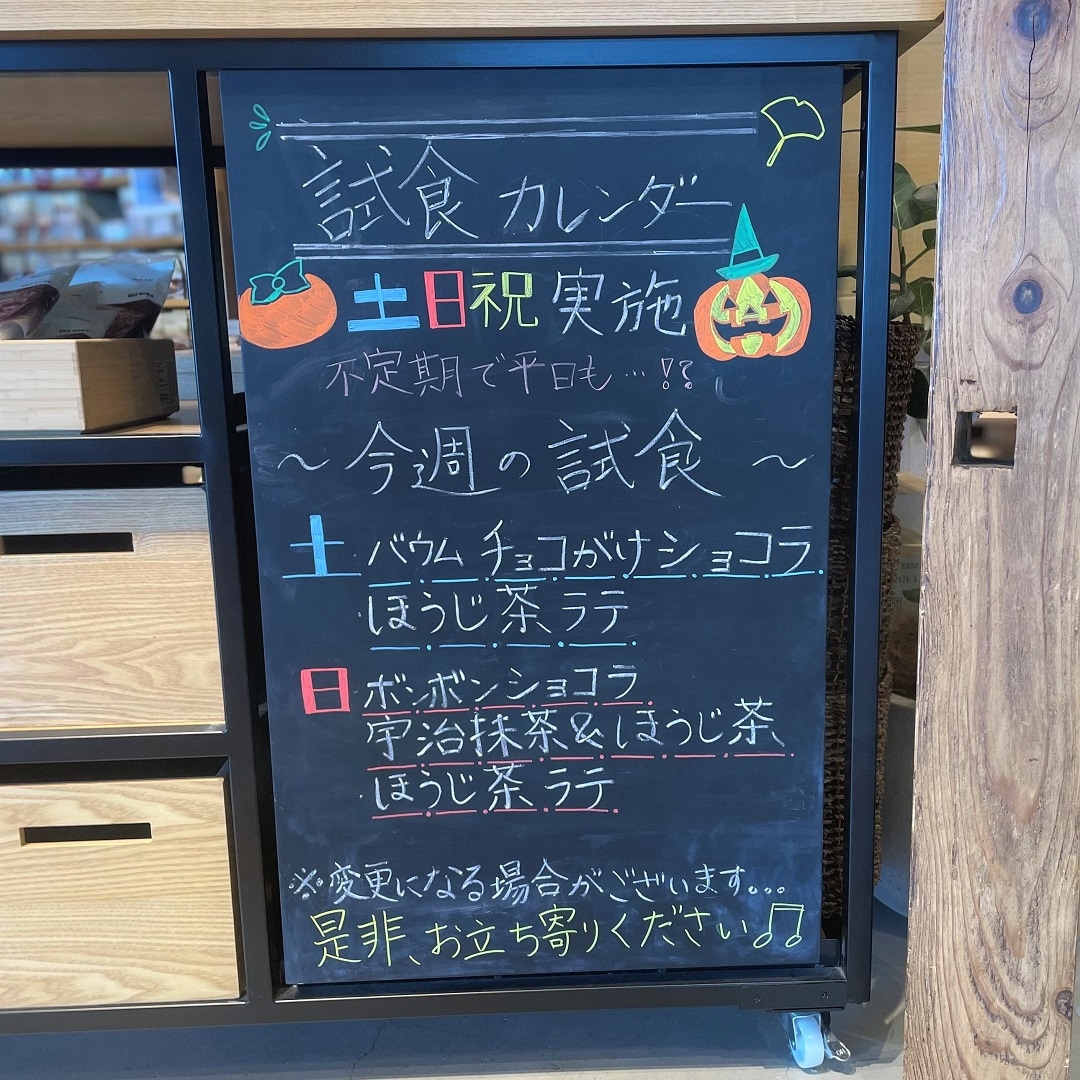 試食カレンダー
土日祝実施
不定期で平日も…!?
～今週の試食～
土 バウムチョコがけショコラ
・ほうじ茶ラテ
日 ボンボンショコラ
宇治抹茶&ほうじ茶
・ほうじ茶ラテ
※変更になる場合がございます...
是非、お立ち寄りください♫